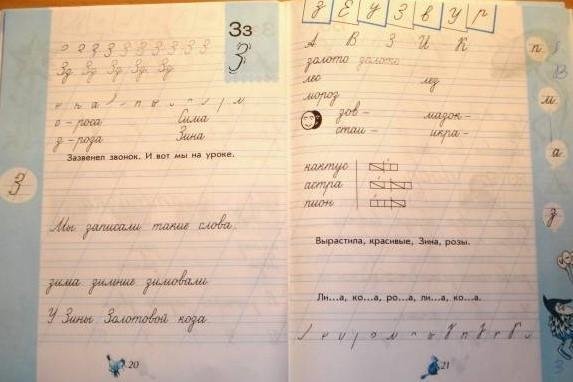 Зз
З
З З З З З З З З
Зд Зд Зд Зд Зд
с - роса Сима
з - роза Зина
Зазвенел звонок. И вот мы на уроке.
З
Мы записали такие слова.
зима зимние зимовали
У Зины Золотовой коза
20
З Е У З в У г
А В З И К
золото золото
лес лез
мороз
зов - мазок -
стаи - икра -
кактус
астра
пион
Вырастила, красивые, Зина, розы.
Ли...а, ко...а, ро...а, ли...а, ко...а.
21
п
м
а
з